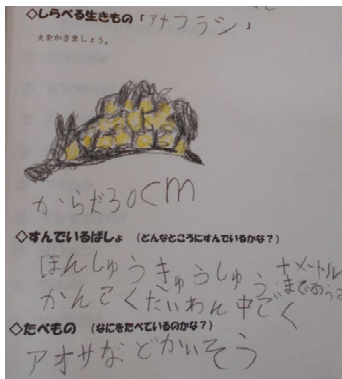 ◇しらべる生きもの「アメフラシ」
えをかきましょう。
からだ30cm
◇すんでいるばしょ (どんなところにすんでいるかな?)
ほんしゅうきゅうしゅう 十メートル
かんこくたいわん中ごく まであるって
◇たべもの (なにをたべているのかな?)
アオサなどかいそう